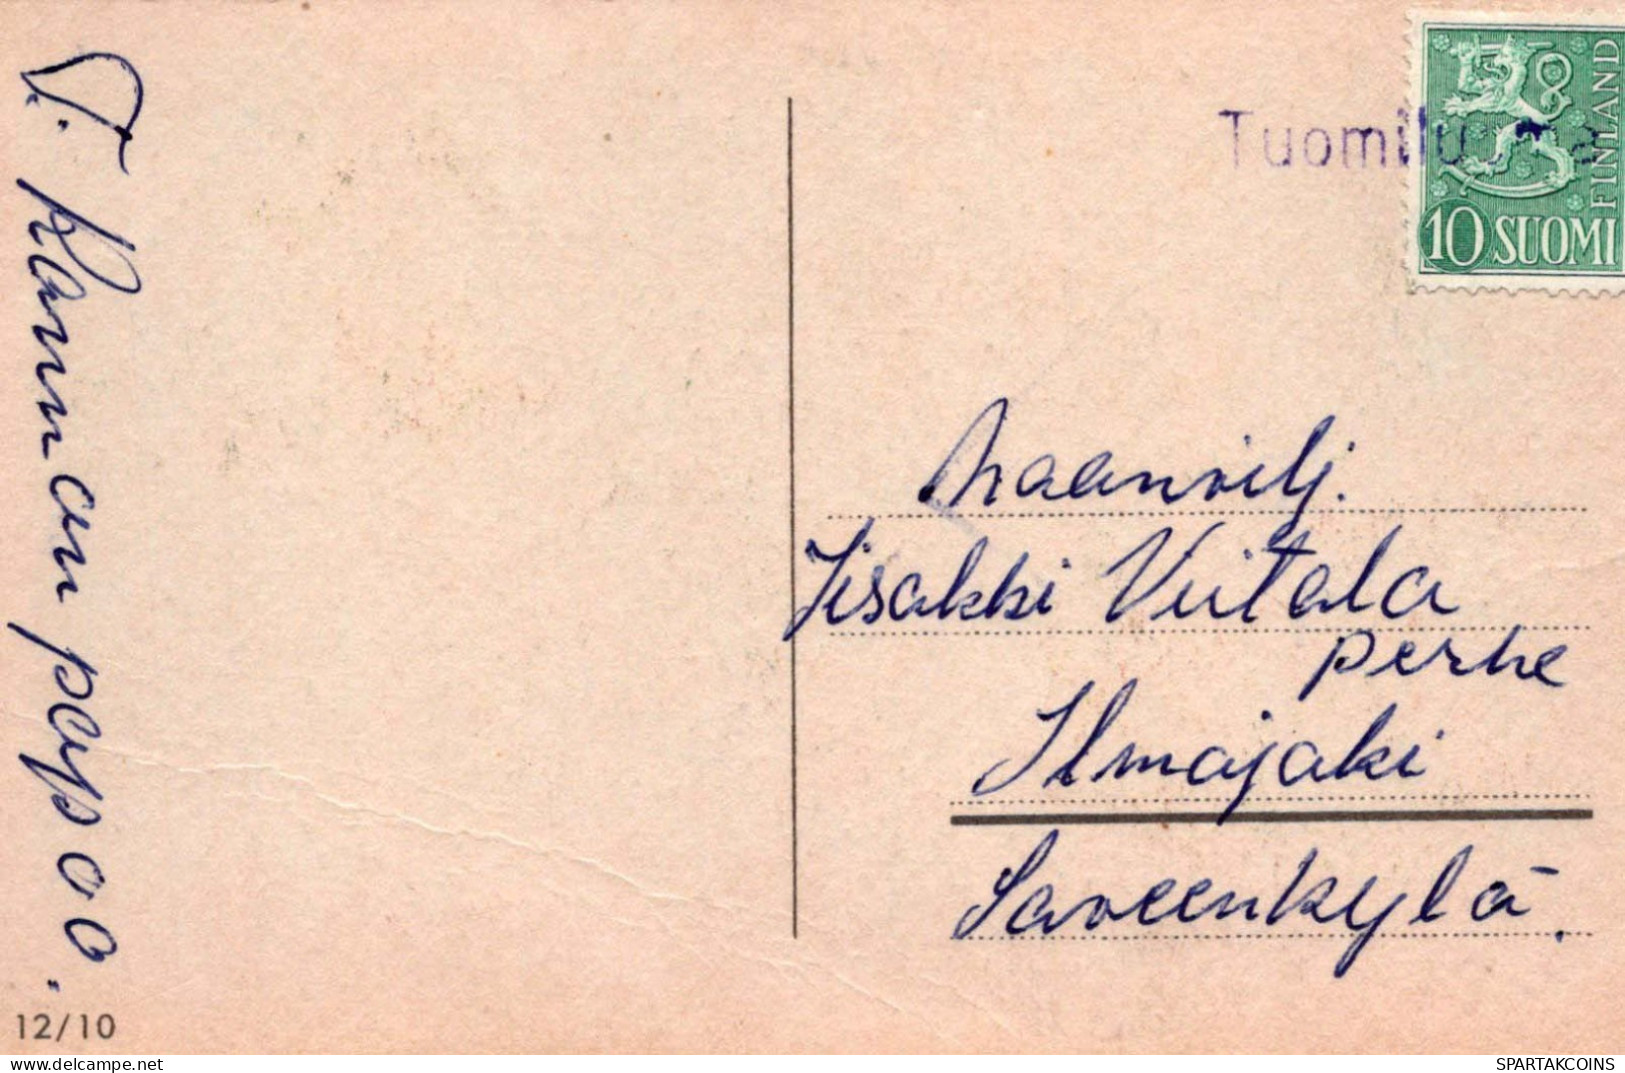 T.
12/10
Tuomiluoma
FINLAND
10 SUOMI
Maanvilj.
Iisakki Viitala
perhe
Ilmajoki
Saveenkylä.
delcampe.net
SPARTAKCOINS